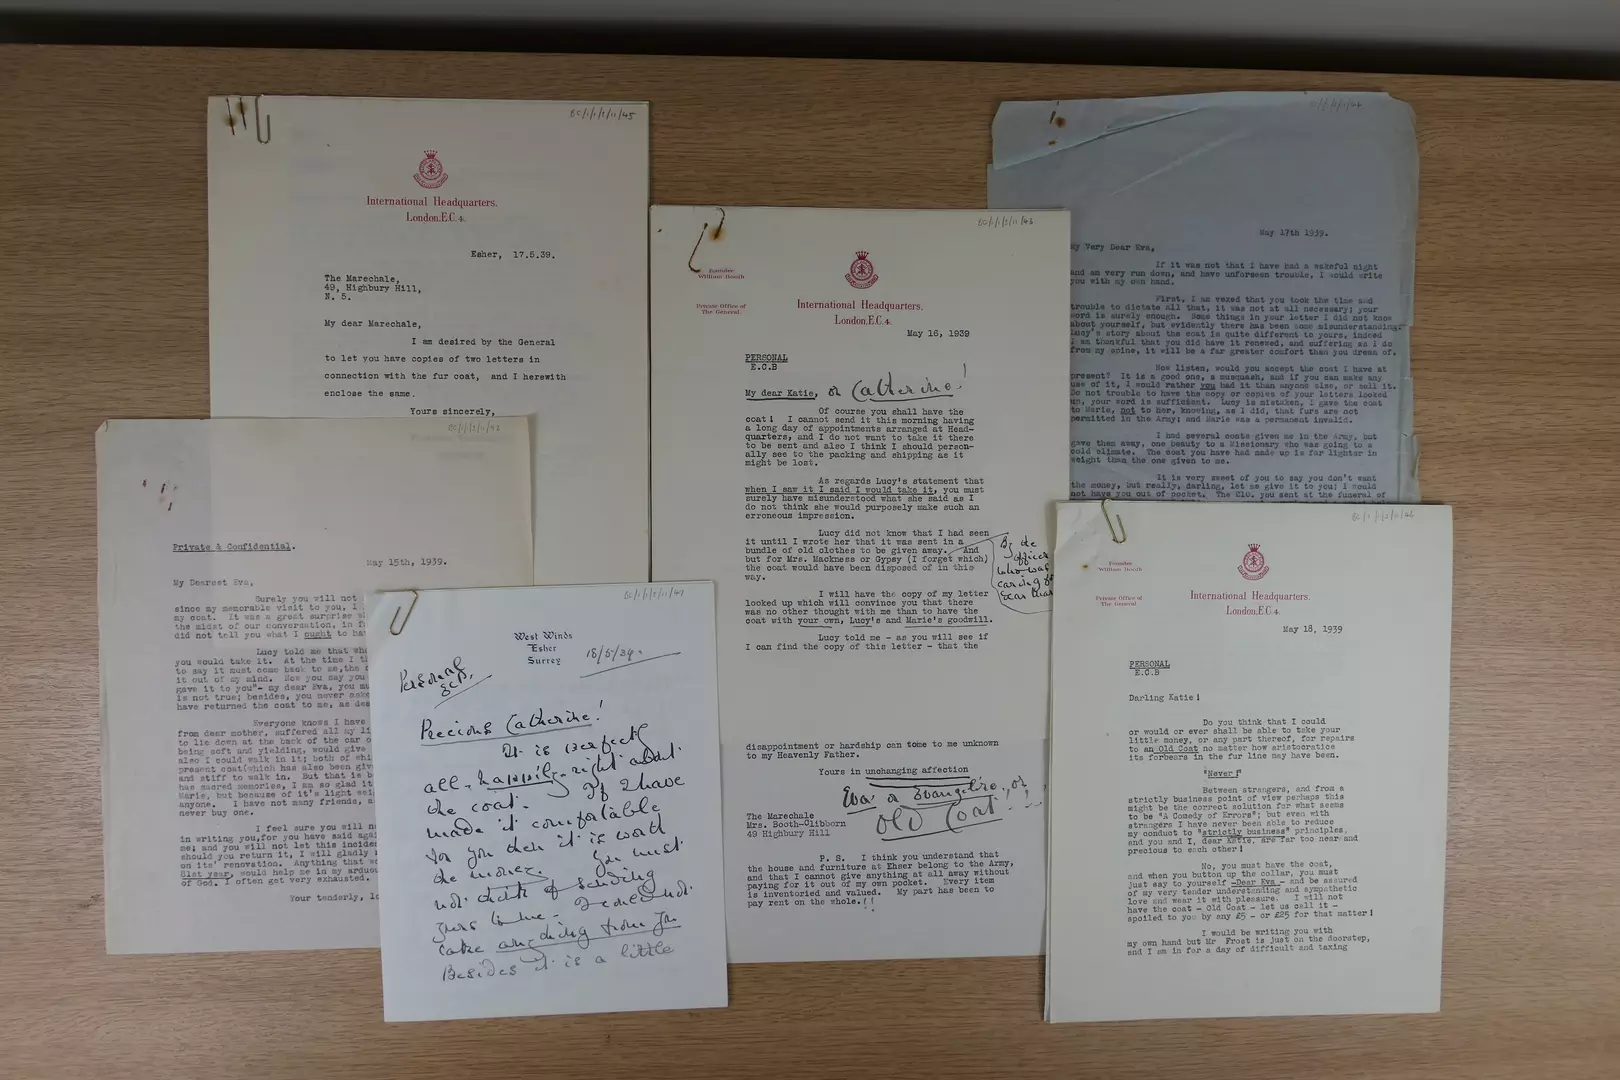 BC/1/1/2/11/45
International Headquarters.
London, E.C. 4.
Esher, 17.5.39.
The Marechale,
49, Highbury Hill,
N. 5.
My dear Marechale,
I am desired by the General
to let you have copies of two letters in
connection with the fur coat, and I herewith
enclose the same.
Yours sincerely,
Private & Confidential.
May 15th, 1939.
My Dearest Eva,
Surely you will not
since my memorable visit to you, I
my coat. It was a great surprise
the midst of our conversation, in
did not tell you what I ought to
Lucy told me that
you would take it. At the time I
to say it must come back to me, the
it out of my mind. Now you say you
gave it to you"- my dear Eva, you
is not true; besides, you never
have returned the coat to me, as
Everyone knows I have
from dear mother, suffered all my
to lie down at the back of the car
being soft and yielding, would give
also I could walk in it; both of
present coat(which has also been
and stiff to walk in. But that is
has sacred memories, I am so glad
Marie, but because of it's light
anyone. I have not many friends,
never buy one.
I feel sure you will
in writing you, for you have said
me; and you will not let this
should you return it, I will gladly
on its' renovation. Anything that
81st year, would help me in my
of God. I often get very exhausted.
Your tenderly,
West Winds
Esher
Surrey
18/5/39.
Personal
ECB.
Precious Catherine!
It is perfectly
all - happily - right about
the coat. If I have
made it comfortable
for you then it is worth
the money. You must
not think of sending
I could not
take anything from you
Besides it is a little
BC/1/1/2/11/43
Founder
William Booth
Private Office of
The General.
International Headquarters.
London, E.C. 4.
May 16, 1939
PERSONAL
E.C.B
My dear Katie, or Catherine!
Of course you shall have the
coat! I cannot send it this morning having
a long day of appointments arranged at Head-
quarters, and I do not want to take it there
to be sent and also I think I should person-
ally see to the packing and shipping as it
might be lost.
As regards Lucy's statement that
when I saw it I said I would take it, you must
surely have misunderstood what she said as I
do not think she would purposely make such an
erroneous impression.
Lucy did not know that I had seen
it until I wrote her that it was sent in a
bundle of old clothes to be given away. And
but for Mrs. Mackness or Gypsy (I forget which)
the coat would have been disposed of in this
way.
By the
officer
who was
caring for
dear Marie
I will have the copy of my letter
looked up which will convince you that there
was no other thought with me than to have the
coat with your own, Lucy's and Marie's goodwill.
Lucy told me - as you will see if
I can find the copy of this letter - that the
disappointment or hardship can come to me unknown
to my Heavenly Father.
Yours in unchanging affection
Eva or Evangeline, or
Old Coat!!!
The Marechale
Mrs. Booth-Clibborn
49 Highbury Hill
P. S. I think you understand that
the house and furniture at Esher belong to the Army,
and that I cannot give anything at all away without
paying for it out of my own pocket. Every item
is inventoried and valued. My part has been to
pay rent on the whole.!!
May 17th 1939.
My Very Dear Eva,
If it was not that I have had a wakeful night
and am very run down, and have unforseen trouble, I would write
you with my own hand.
First, I am vexed that you took the time and
trouble to dictate all that, it was not at all necessary; your
word is surely enough. Some things in your letter I did not know
about yourself, but evidently there has been some misunderstanding.
Lucy's story about the coat is quite different to yours, indeed
I am thankful that you did have it renewed, and suffering as I do
from my spine, it will be a far greater comfort than you dream of.
Now listen, would you accept the coat I have at
present? It is a good one, a musquash, and if you can make any
use of it, I would rather you had it than anyone else, or sell it.
Do not trouble to have the copy or copies of your letters looked
up, your word is sufficient. Lucy is mistaken, I gave the coat
to Marie, not to her, knowing, as I did, that furs are not
permitted in the Army; and Marie was a permanent invalid.
I had several coats given me in the Army, but
gave them away, one beauty to a Missionary who was going to a
cold climate. The coat you have had made up is far lighter in
weight than the one given to me.
It is very sweet of you to say you don't want
the money, but really, darling, let me give it to you; I could
not have you out of pocket. The £10. you sent at the funeral of
BC/1/1/2/11/46
Founder
William Booth
Private Office of
The General.
International Headquarters.
London, E.C. 4.
May 18, 1939
PERSONAL
E.C.B
Darling Katie!
Do you think that I could
or would or ever shall be able to take your
little money, or any part thereof, for repairs
to an Old Coat no matter how aristocratic
its forbears in the fur line may have been.
"Never!"
Between strangers, and from a
strictly business point of view perhaps this
might be the correct solution for what seems
to be "A Comedy of Errors"; but even with
strangers I have never been able to reduce
my conduct to "strictly business" principles,
and you and I, dear Katie, are far too near and
precious to each other!
No, you must have the coat,
and when you button up the collar, you must
just say to yourself -Dear Eva - and be assured
of my very tender understanding and sympathetic
love and wear it with pleasure. I will not
have the coat - Old Coat - let us call it -
spoiled to you by any £5 - or £25 for that matter!
I would be writing you with
my own hand but Mr Frost is just on the doorstep,
and I am in for a day of difficult and taxing